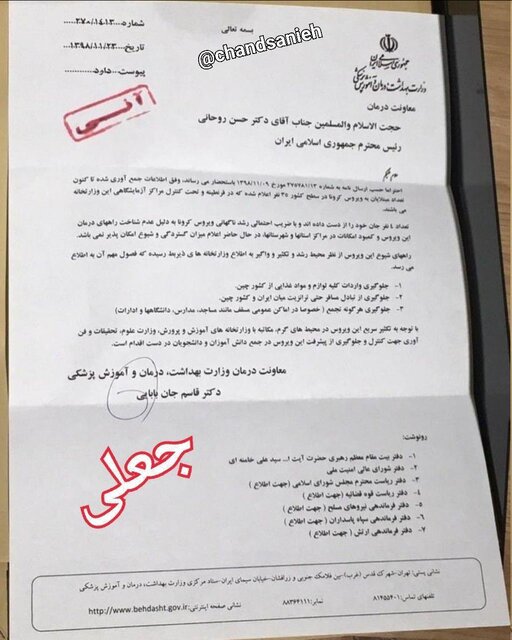 بسمه تعالی
شماره: ۲۷۰/۱۴۱۳
تاریخ: ۱۳۹۸/۱۱/۲۳
پیوست: دارد
@chandsanieh
جمهوری اسلامی ایران
وزارت بهداشت، درمان و آموزش پزشکی
آنی
معاونت درمان
حجت الاسلام والمسلمین جناب آقای دکتر حسن روحانی
رئیس محترم جمهوری اسلامی ایران
احتراما حسب ارسال نامه به شماره ۲۷۵۲۸۱/۱۳ مورخ ۱۳۹۸/۱۱/۰۹ باستحضار می رساند، وفق اطلاعات جمع آوری شده تا کنون
تعداد مبتلایان به ویروس کرونا در سطح کشور ۳۵ نفر اعلام شده که در قرنطینه و تحت کنترل مراکز آزمایشگاهی این وزارتخانه
می باشند.
تعداد ۴ نفر جان خود را از دست داده اند و با ضریب احتمالی رشد ناگهانی ویروس کرونا به دلیل عدم شناخت راههای درمان
این ویروس و کمبود امکانات در مراکز استانها و شهرستانها، در حال حاضر اعلام میزان گستردگی و شیوع امکان پذیر نمی باشد.
راههای شیوع این ویروس از نظر محیط رشد و تکثیر و واگیر به اطلاع وزارتخانه ها ی ذیربط رسیده که فصول مهم آن به اطلاع
می رسد.
۱- جلوگیری واردات کلیه لوازم و مواد غذایی از کشور چین.
۲- جلوگیری از تبادل مسافر حتی ترانزیت میان ایران و کشور چین.
۳- جلوگیری هرگونه تجمع ( خصوصا در اماکن عمومی مسقف مانند مساجد، مدارس، دانشگاهها و ادارات)
با توجه به تکثیر سریع این ویروس در محیط های گرم، مکاتبه با وزارتخانه های آموزش و پرورش، وزارت علوم، تحقیقات و فن
آوری جهت کنترل و جلوگیری از پیشرفت این ویروس در جمع دانش آموزان و دانشجویان در دست اقدام است.
معاونت درمان وزارت بهداشت، درمان و آموزش پزشکی
دکتر قاسم جان بابایی
جعلی
رونوشت:
۱- دفتر بیت مقام معظم رهبری حضرت آیت ا... سید علی خامنه ای
۲- دفتر شورای عالی امنیت ملی
۳- دفتر ریاست محترم مجلس شورای اسلامی (جهت اطلاع )
۴- دفتر ریاست قوه قضائیه (جهت اطلاع )
۵- دفتر فرماندهی نیروهای مسلح ( جهت اطلاع )
۶- دفتر فرماندهی سپاه پاسداران ( جهت اطلاع )
۷- دفتر فرماندهی ارتش ( جهت اطلاع )
نشانی پستی: تهران-شهرک قدس (غرب)-بین فلامک جنوبی و زرافشان-خیابان سیمای ایران-ستاد مرکزی وزارت بهداشت، درمان و آموزش پزشکی
تلفنهای تماس: ۸۱۴۵۵۴۰۱ نمابر: ۸۸۳۶۴۱۱۱ نشانی صفحه اینترنتی: http://www.behdasht.gov.ir